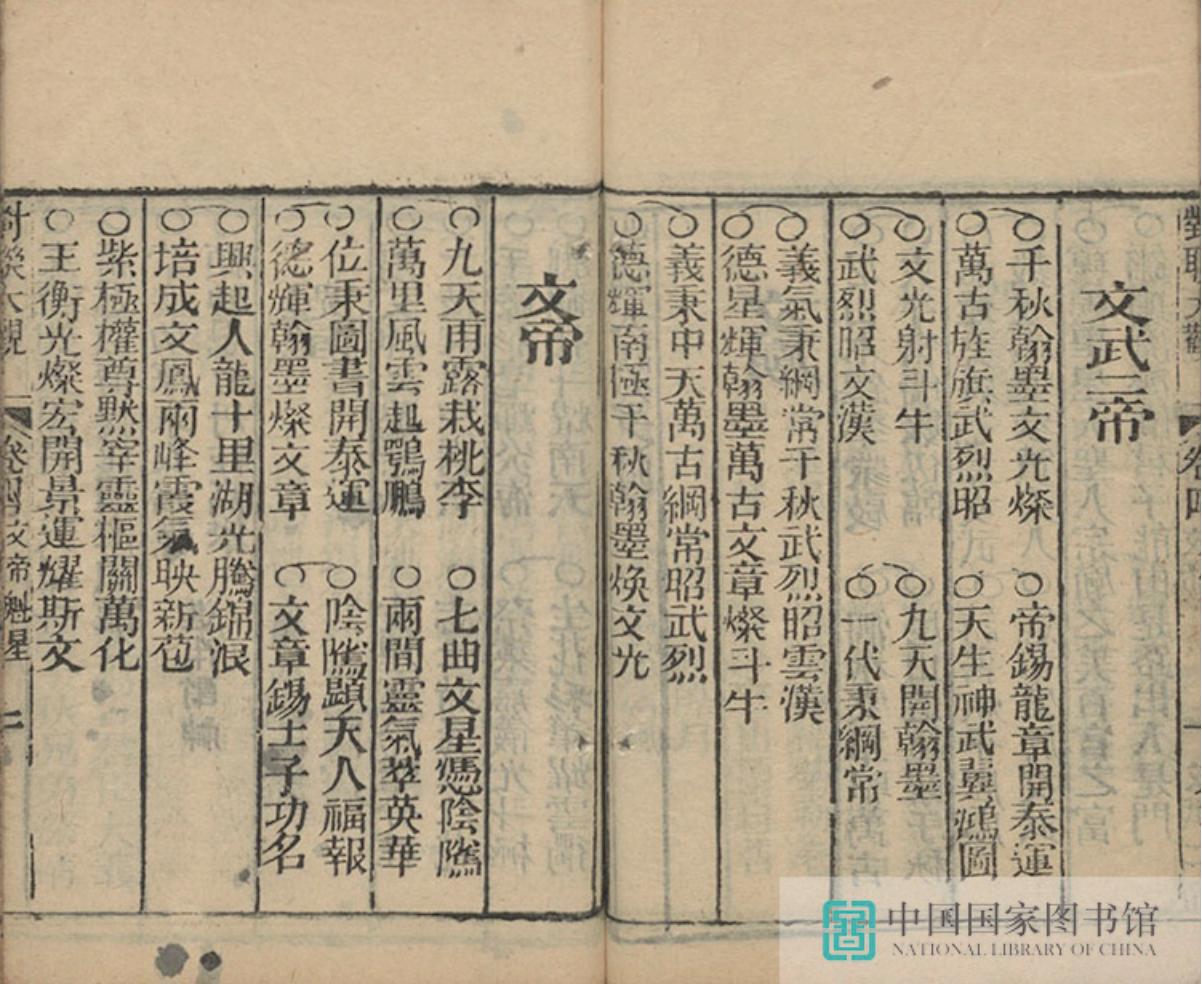 文武二帝
千秋翰墨文光燦　帝錫龍章開泰運
萬古旌旗武烈昭　天生神武巽鴻圖
文光射斗牛　九天開翰墨
武烈昭文漢　一代秉綱常
義氣秉綱常千秋武烈昭雲漢
德星輝翰墨萬古文章燦斗牛
義秉中天萬古綱常昭武烈
德輝南極千秋翰墨煥文光
文帝
九天雨露栽桃李　七曲文星憑陰隲
萬里風雲起鶚鵬　兩間靈氣萃英華
位秉圖書開泰運　陰隲顯天人福報
德輝翰墨燦文章　文章錫士子功名
興起人龍十里湖光騰錦浪
培成文鳳兩峰霞氣映新苞
紫極權尊默宰靈樞關萬化
王衡光燦宏開景運耀斯文
大觀　卷四文帝魁星　二
中国国家图书馆
NATIONAL LIBRARY OF CHINA